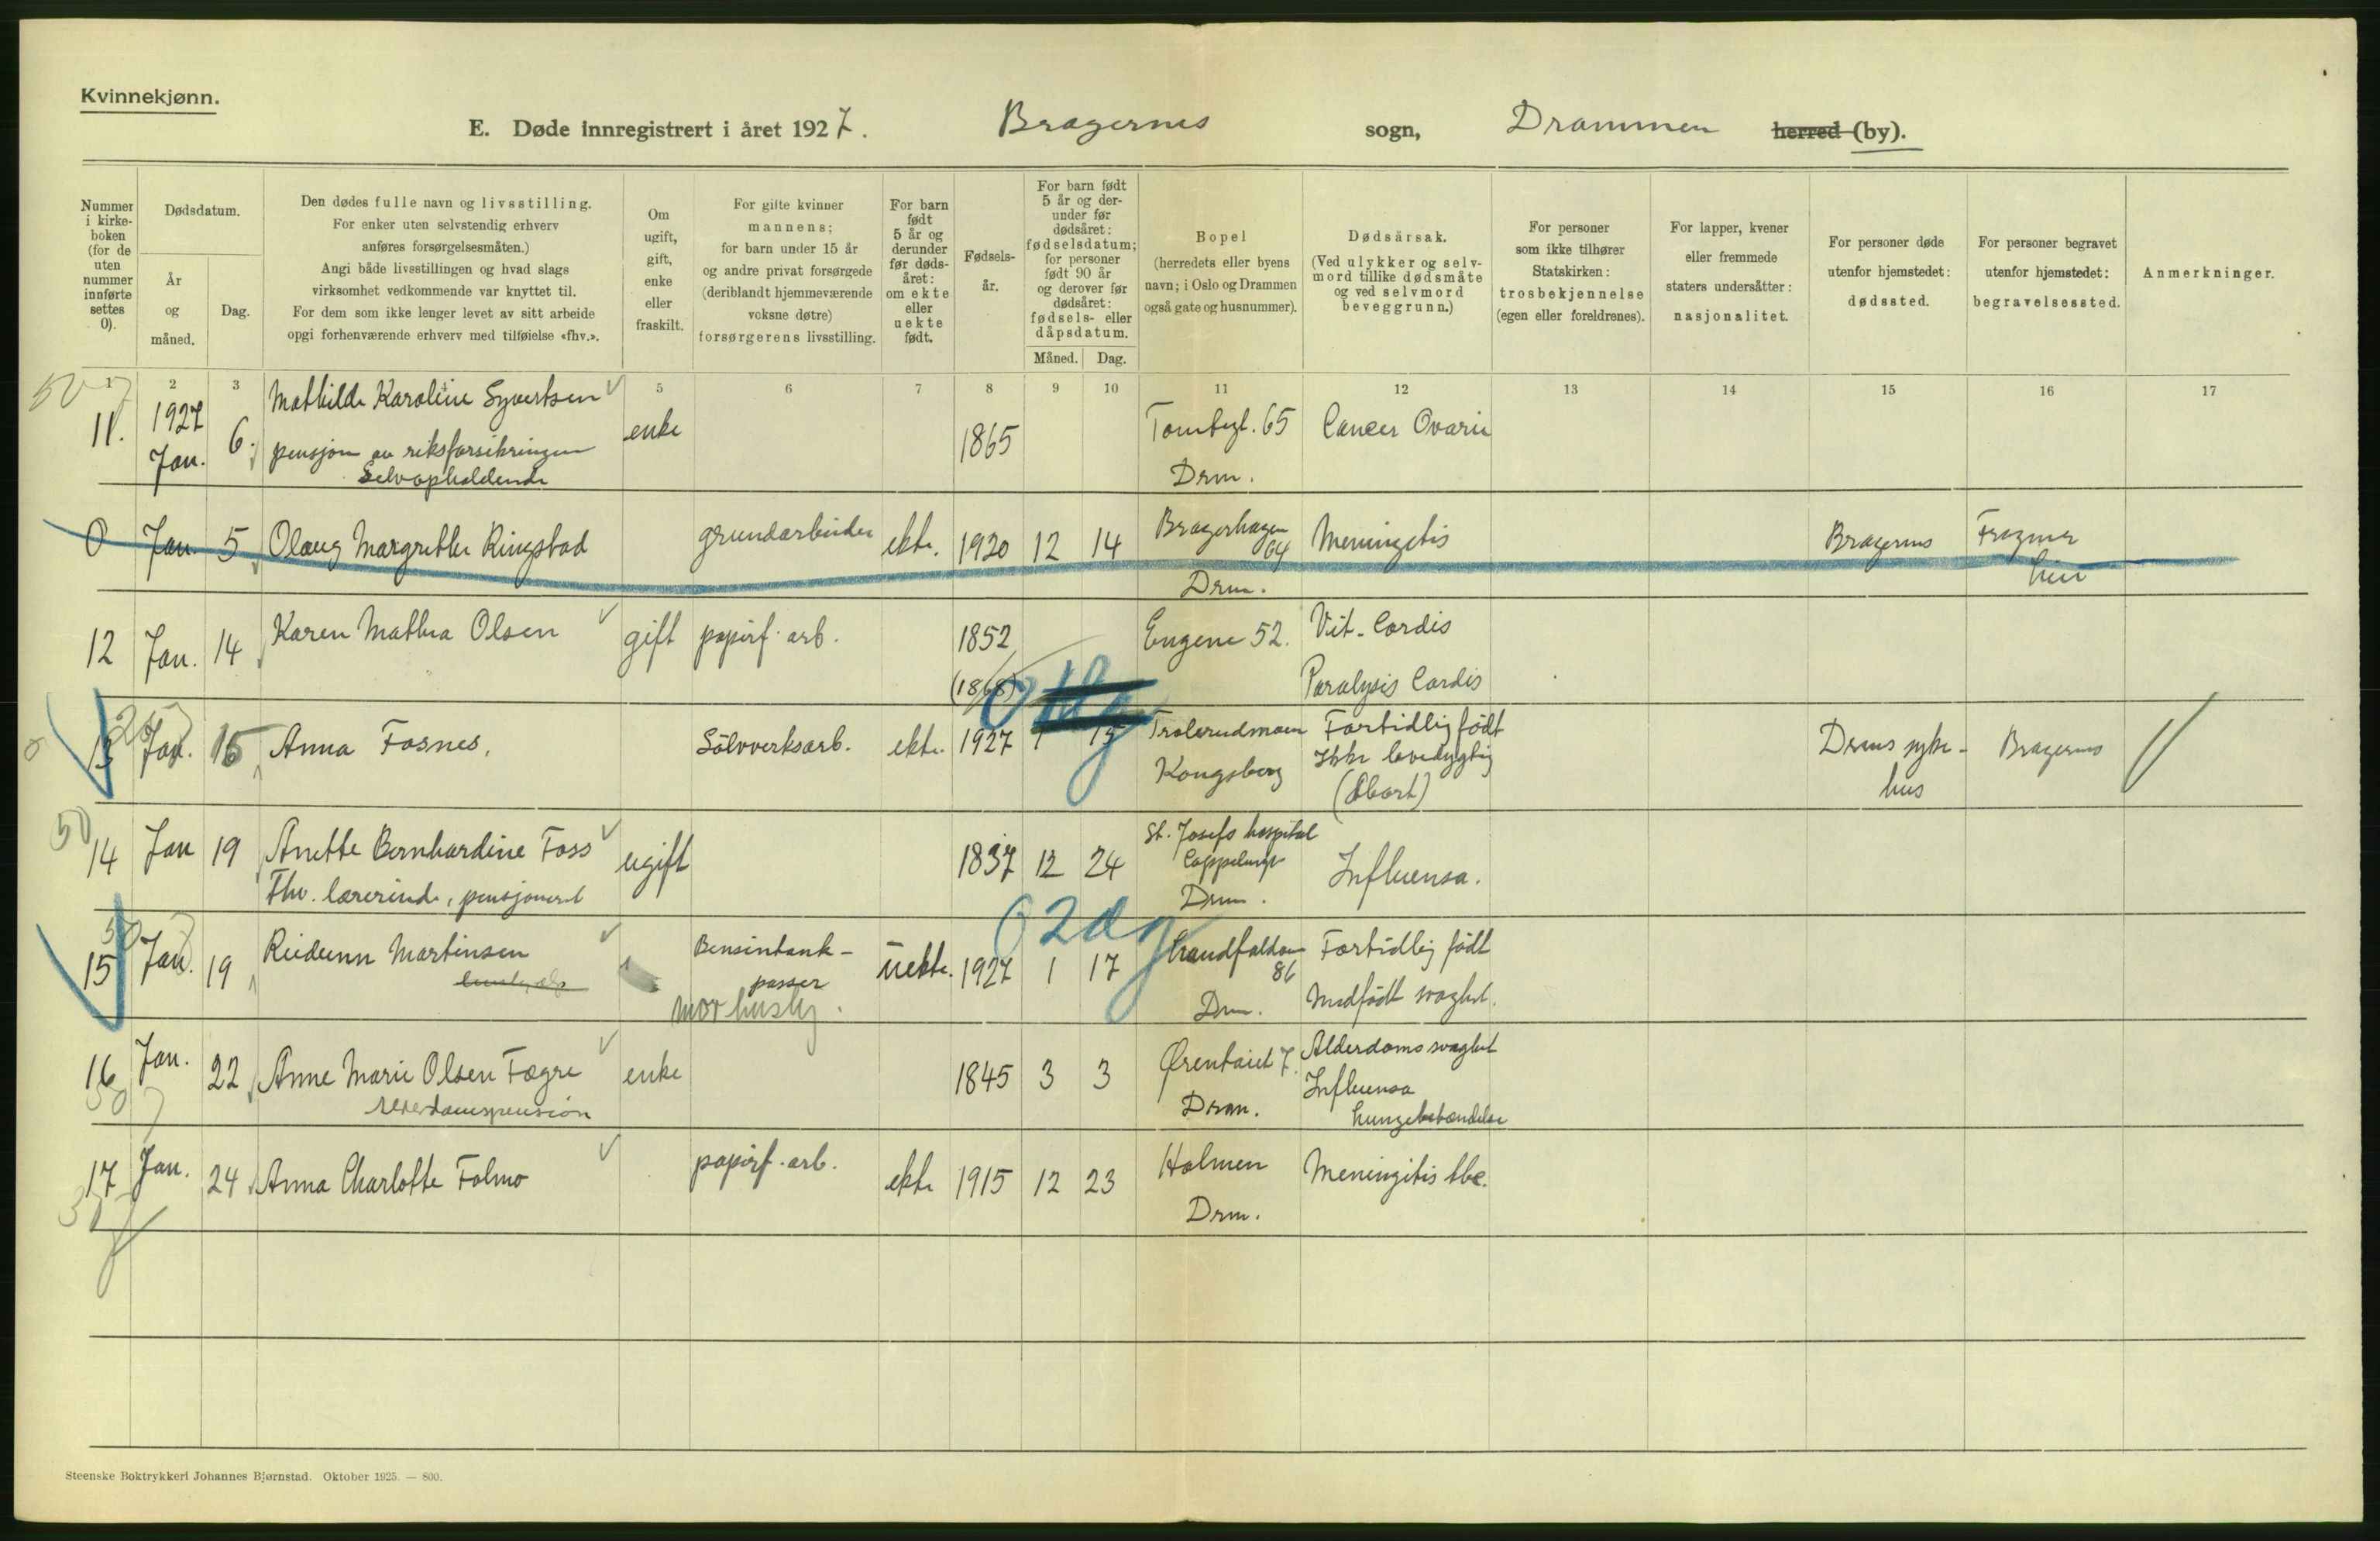 Kvinnekjønn.
E. Døde innregistrert i året 1927. Bragernes sogn, Drammen herred (by).
Nummer i kirkeboken (for de uten nummer innførte settes 0).
Dødsdatum.
År og måned.
Dag.
Den dødes fulle navn og livsstilling.
For enker uten selvstendig erhverv
anføres forsørgelsesmåten.)
Angi både livsstillingen og hvad slags
virksomhet vedkommende var knyttet til.
For dem som ikke lenger levet av sitt arbeide
opgi forhenværende erhverv med tilføielse «fhv.».
Om ugift, gift, enke eller fraskilt.
For gifte kvinner
mannens;
for barn under 15 år
og andre privat forsørgede
(deriblandt hjemmeværende
voksne døtre)
forsørgerens livsstilling.
For barn født 5 år og derunder før dødsåret: om ekte eller uekte født.
Fødselsår.
For barn født 5 år og derunder før dødsåret: fødselsdatum; for personer født 90 år og derover før dødsåret: fødsels- eller dåpsdatum.
Måned. Dag.
Bopel
(herredets eller byens
navn; i Oslo og Drammen
også gate og husnummer).
Dødsårsak.
(Ved ulykker og selv-
mord tillike dødsmåte
og ved selvmord
beveggrunn.)
For personer
som ikke tilhører
Statskirken:
trosbekjennelse
(egen eller foreldrenes).
For lapper, kvener
eller fremmede
staters undersåtter:
nasjonalitet.
For personer døde
utenfor hjemstedet:
dødssted.
For personer begravet
utenfor hjemstedet:
begravelsessted.
Anmerkninger.
1 2 3 5 6 7 8 9 10 11 12 13 14 15 16 17
11. 1927 Jan. 6. Mathilde Karoline Syvertsen enke 1865 65 Cancer Ovarii
pensjon av riksforsikringen Drm.
Selvopholdende
0 Jan. 5 Olaug Margrethe Ringstad grundarbeider ekte. 1920 12 14 Bragerhagen 64 Meningitis Bragernes Frogner
Drm. lier
12 Jan. 14 Karen Mathea Olsen gift papirf. arb. 1852 Engene 52. Vit. Cordis
(1868) Paralysis Cordis
13 Jan. 15 Anna Fosnes, Sölvverksarb. ekte. 1927 1 15 Fortidlig født Drms syke- Bragernes
Kongsberg Ikke levedygtig hus
(Abort)
14 Jan 19 Anette Bernhardine Foss ugift 1837 12 24 St. Josefs hospital Influensa.
Fhv. lærerinde, pensjoneret Drm.
15 Jan. 19 Reidunn Martinsen Bensintank- uekte. 1927 1 17 86 Fortidlig født
passer Drm. Medfødt svaghet.
mor hush.
0 2 dg
16 Jan. 22 Anne Marie Olsen Fægre enke 1845 3 3 Ørentoiet 7. Alderdomssvaghet
Alderdomspension Dram. Influensa
Lungebetændelse
17 Jan. 24 Anna Charlotte Folmo papirf. arb. ekte 1915 12 23 Holmen Meningitis tbc.
Drm.
Steenske Boktrykkeri Johannes Bjørnstad. Oktober 1925. — 800.